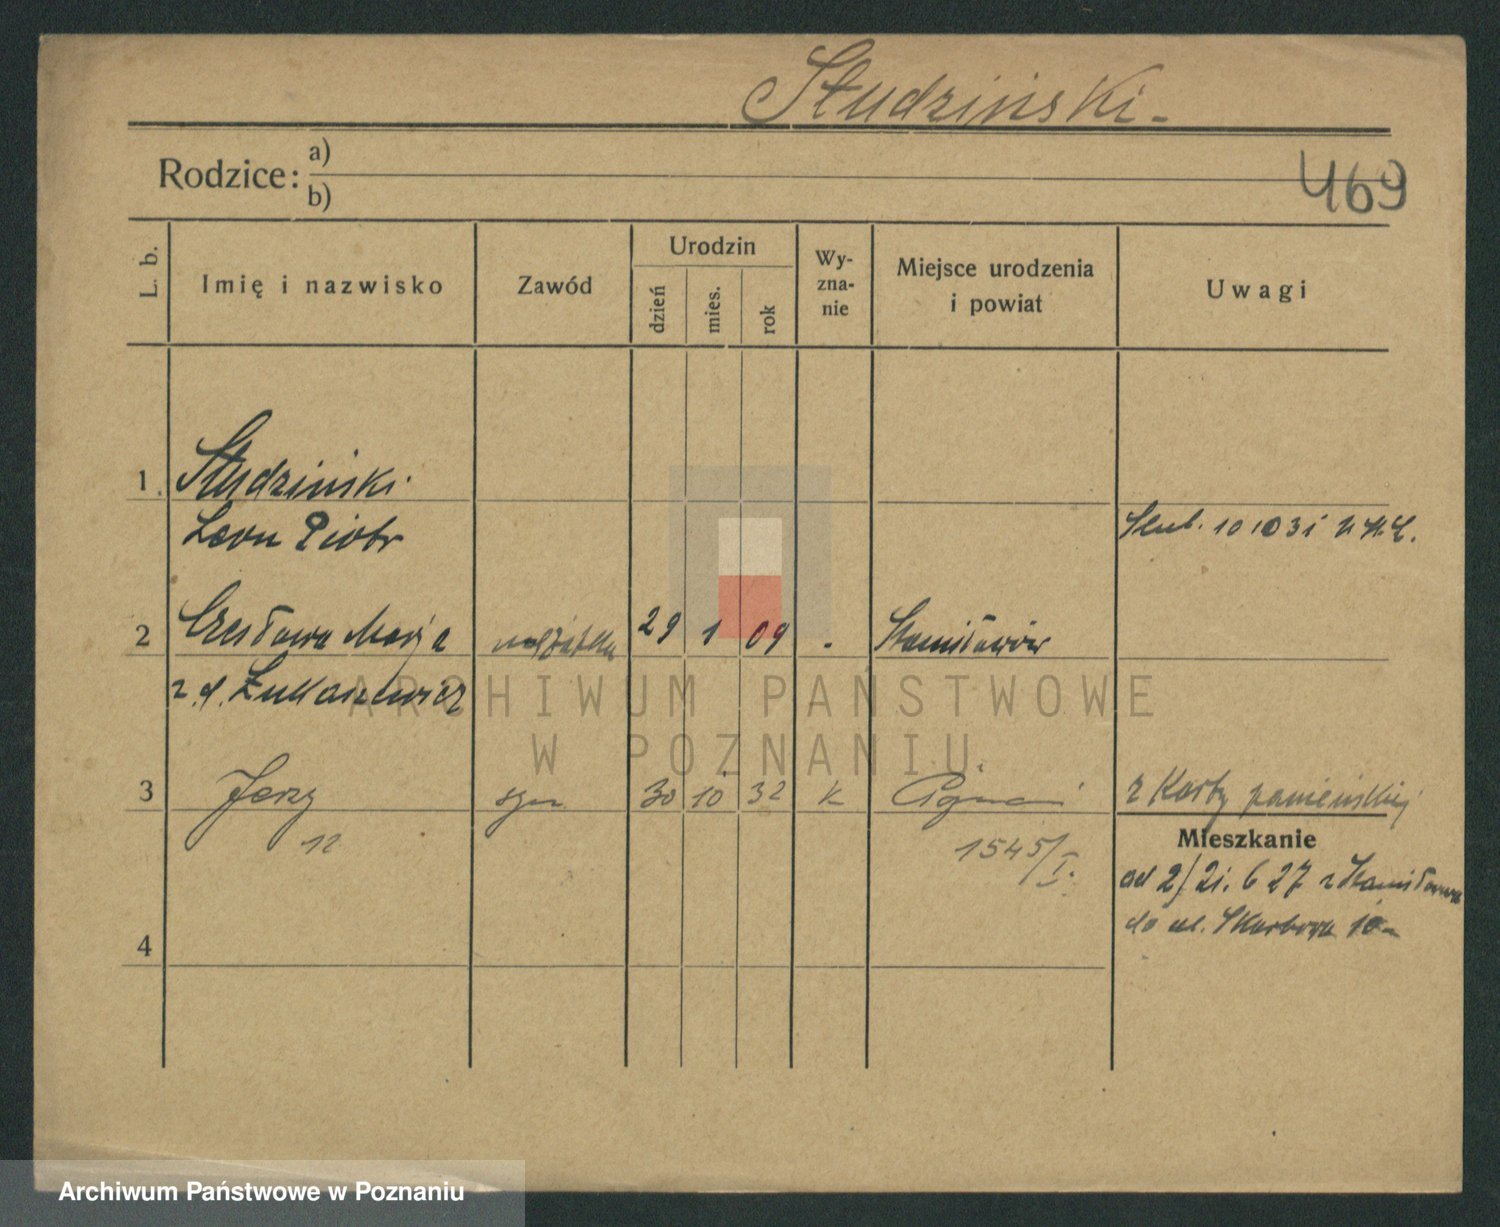 Studziński
Rodzice: a)
b)
469
L. b.
Imię i nazwisko
Zawód
Urodzin
dzień
mies.
rok
Wy-
zna-
nie
Miejsce urodzenia
i powiat
Uwagi
1. Studziński
Leon Piotr
Slub. 10 10 31
2 Czesława Marja 29 1 09 - Stanisławów
z d. Łukaszewicz
3 Jerzy syn 30 10 32 k Poznań z Karty panieńskiej
12
1545/I.
Mieszkanie
od 2/21. 6 27 z Stanisławowa
do ul. Skarbowa 10
4
ARCHIWUM PAŃSTWOWE
W POZNANIU
Archiwum Państwowe w Poznaniu